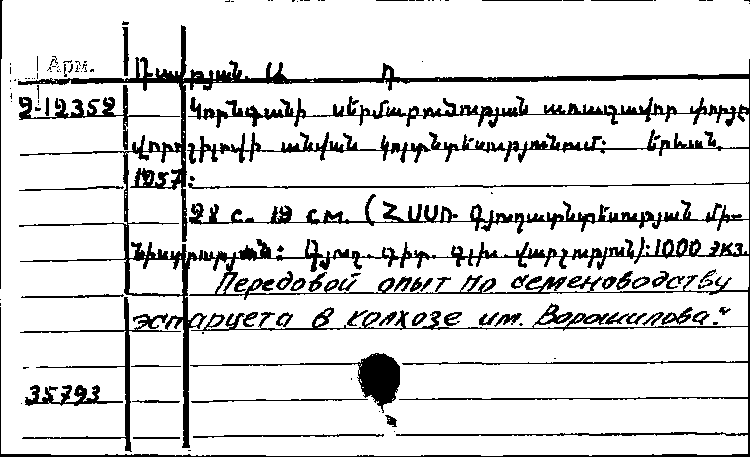 Арм.
2-12352
Կորնգանի սերմաբուծության առաջավոր փորձը
վորոշիլովի անվան կոլտնտեսությունում: Երևան.
1957:
28 с. 19 см. (ՀՍՍՌ Գյուղատնտեսության մի-
նիստրություն: Գյուղ. գիտ. գլխ. վարչություն): 1000 экз.
Передовой опыт по семеноводству
эспарцета в колхозе им. Ворошилова."
35793